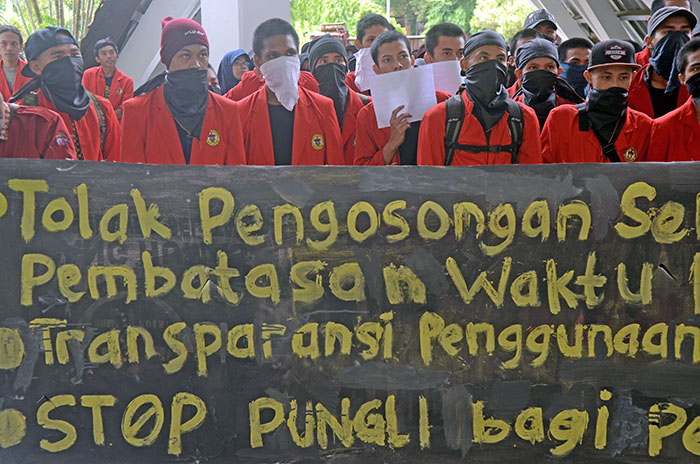 Tolak Pengosongan
Pembatasan Waktu
Transparansi Penggunaan
STOP PUNGLI bagi